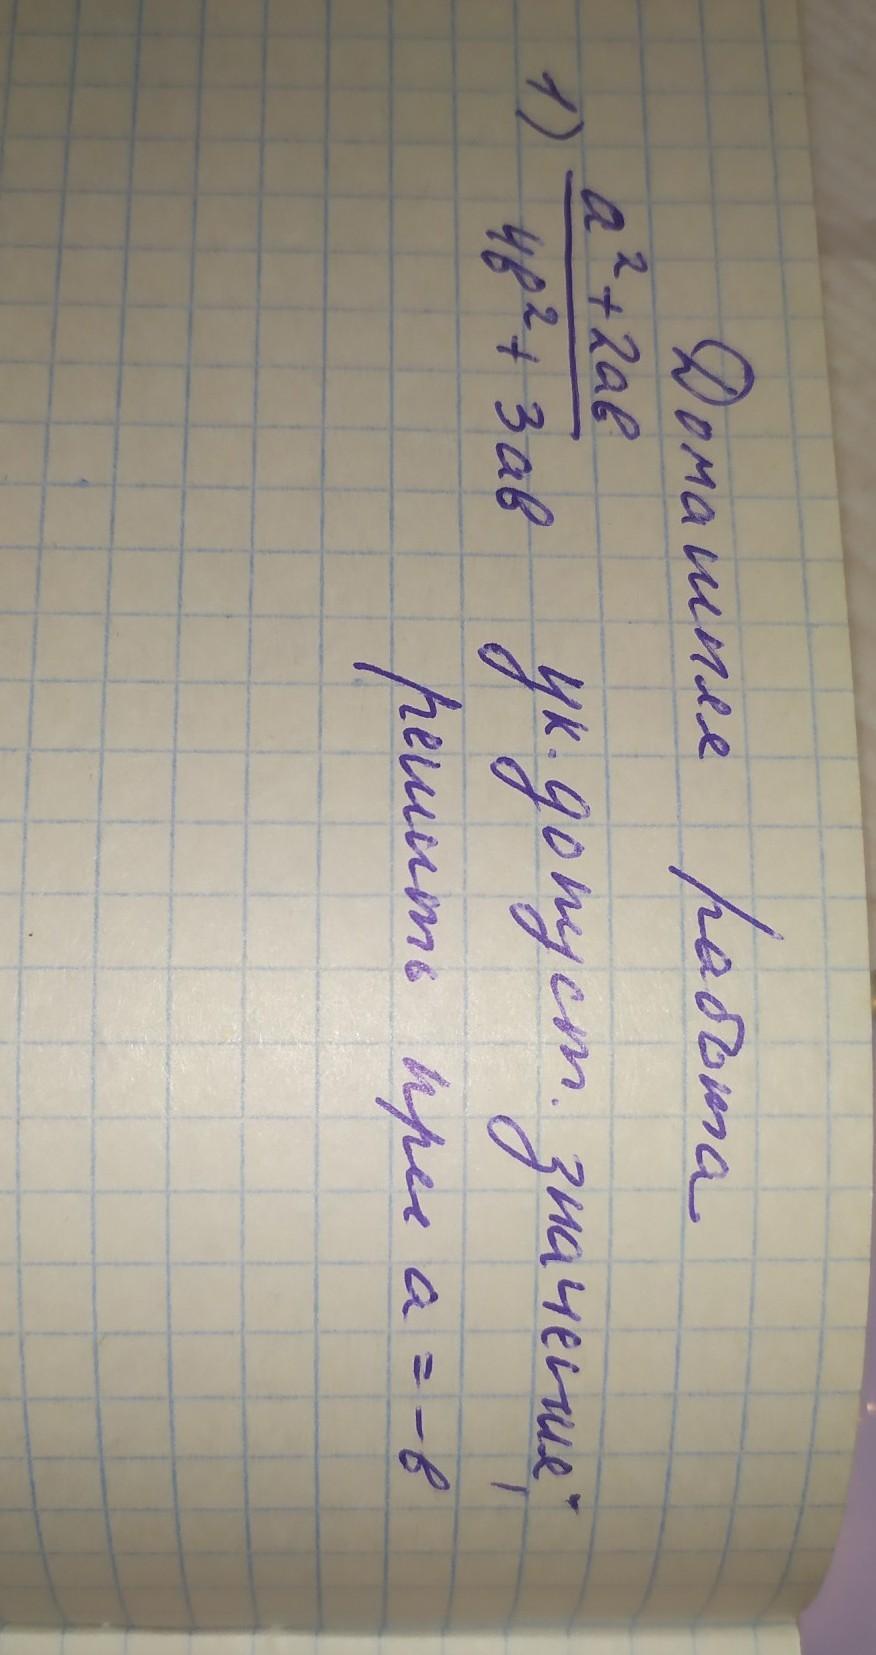 Домашняя работа
1) a² + 2aв
4в² + 3aв
ук. допуст. значения,
решить при a = -в